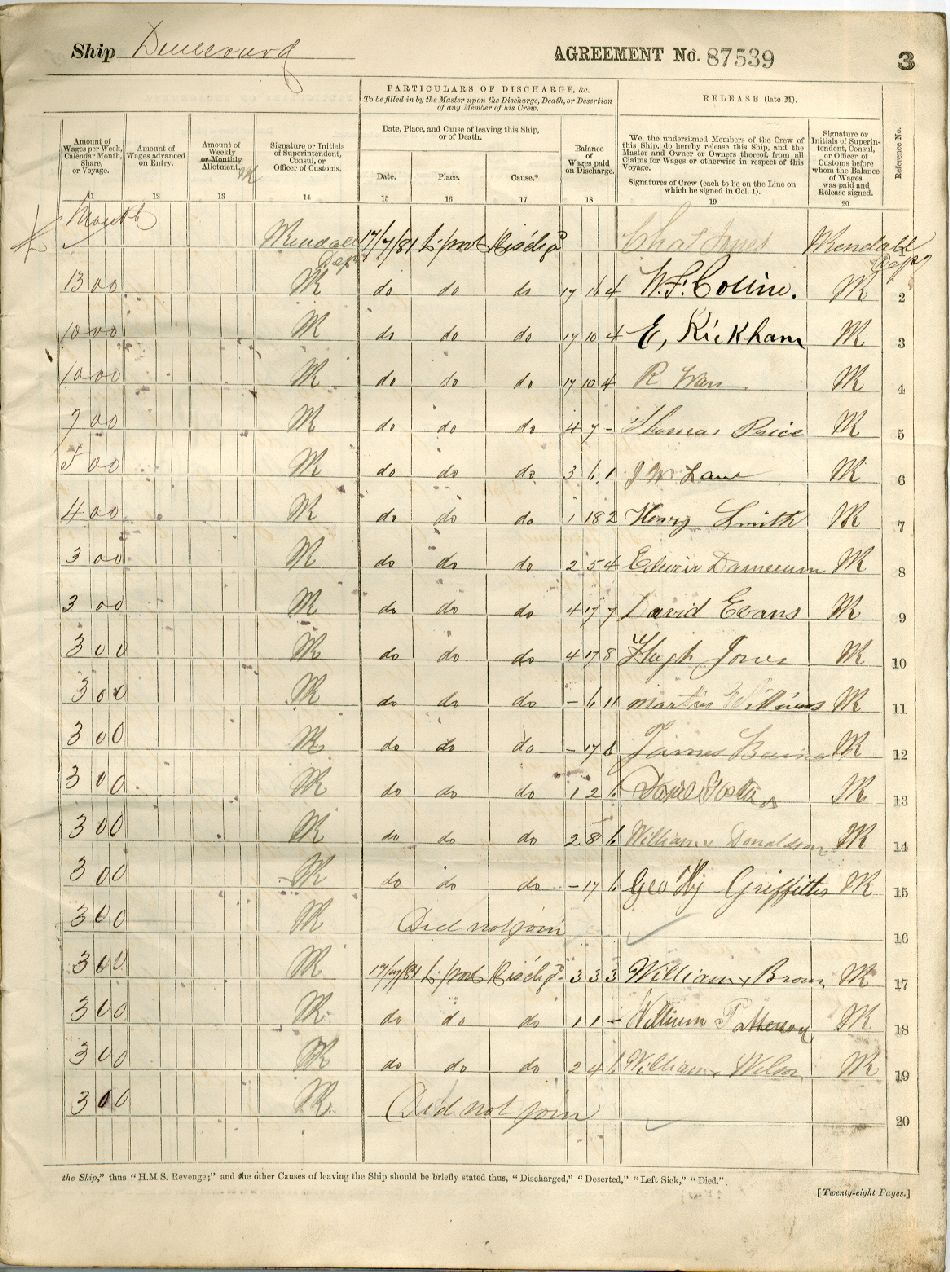 Ship
AGREEMENT No. 87539
3
PARTICULARS OF DISCHARGE, &c.
To be filled in by the Master upon the Discharge, Death, or Desertion of any Member of his Crew.
RELEASE (late M).
Amount of Wages per Week, Calendar Month, Share, or Voyage.
Amount of Wages advanced on Entry.
Amount of Weekly or Monthly Allotment.
Signature or Initials of Superintendent, Consul, or Officer of Customs.
Date, Place, and Cause of leaving this Ship, or of Death.
Date. Place. Cause.*
Balance of Wages paid on Discharge.
We, the undersigned Members of the Crew of this Ship, do hereby release this Ship, and the Master and Owner or Owners thereof, from all Claims for Wages or otherwise in respect of this Voyage.
Signatures of Crew (each to be on the Line on which he signed in Col. 1).
Signature or Initials of Superintendent, Consul, or Officer of Customs before whom the Balance of Wages was paid and Release signed.
Reference No.
11 12 13 14 15 16 17 18 19 20
Month
17/7/81 L'pool Disch'gd
13 0 0 do do do 17 4 2
10 0 0 do do do 17 10 4 E, Kickham 3
10 0 0 do do do 17 10 4 R 4
7 0 0 do do do 4 7 - Thomas Price 5
5 0 0 do do do 3 6 1 Lane 6
4 0 0 do do do 1 18 2 Henry Smith 7
3 0 0 do do do 2 5 4 8
3 0 0 do do do 4 17 7 David Evans 9
3 0 0 do do do 4 17 8 Hugh Jones 10
3 0 0 do do do - 6 11 Martin Williams 11
3 0 0 do do do - 17 6 James 12
3 0 0 do do do 1 2 6 13
3 0 0 do do do 2 8 6 William Donaldson 14
3 0 0 do do do - 17 6 Geo Hy Griffiths 15
3 0 0 Did not join 16
3 0 0 17/7/81 L'pool Disch'gd 3 3 3 William Brown 17
3 0 0 do do do 1 1 - William Patterson 18
3 0 0 do do do 2 4 6 William Wilson 19
3 0 0 Did not join 20
the Ship," thus "H.M.S. Revenge;" and the other Causes of leaving the Ship should be briefly stated thus, "Discharged," "Deserted," "Left Sick," "Died."
[Twenty-eight Pages.]